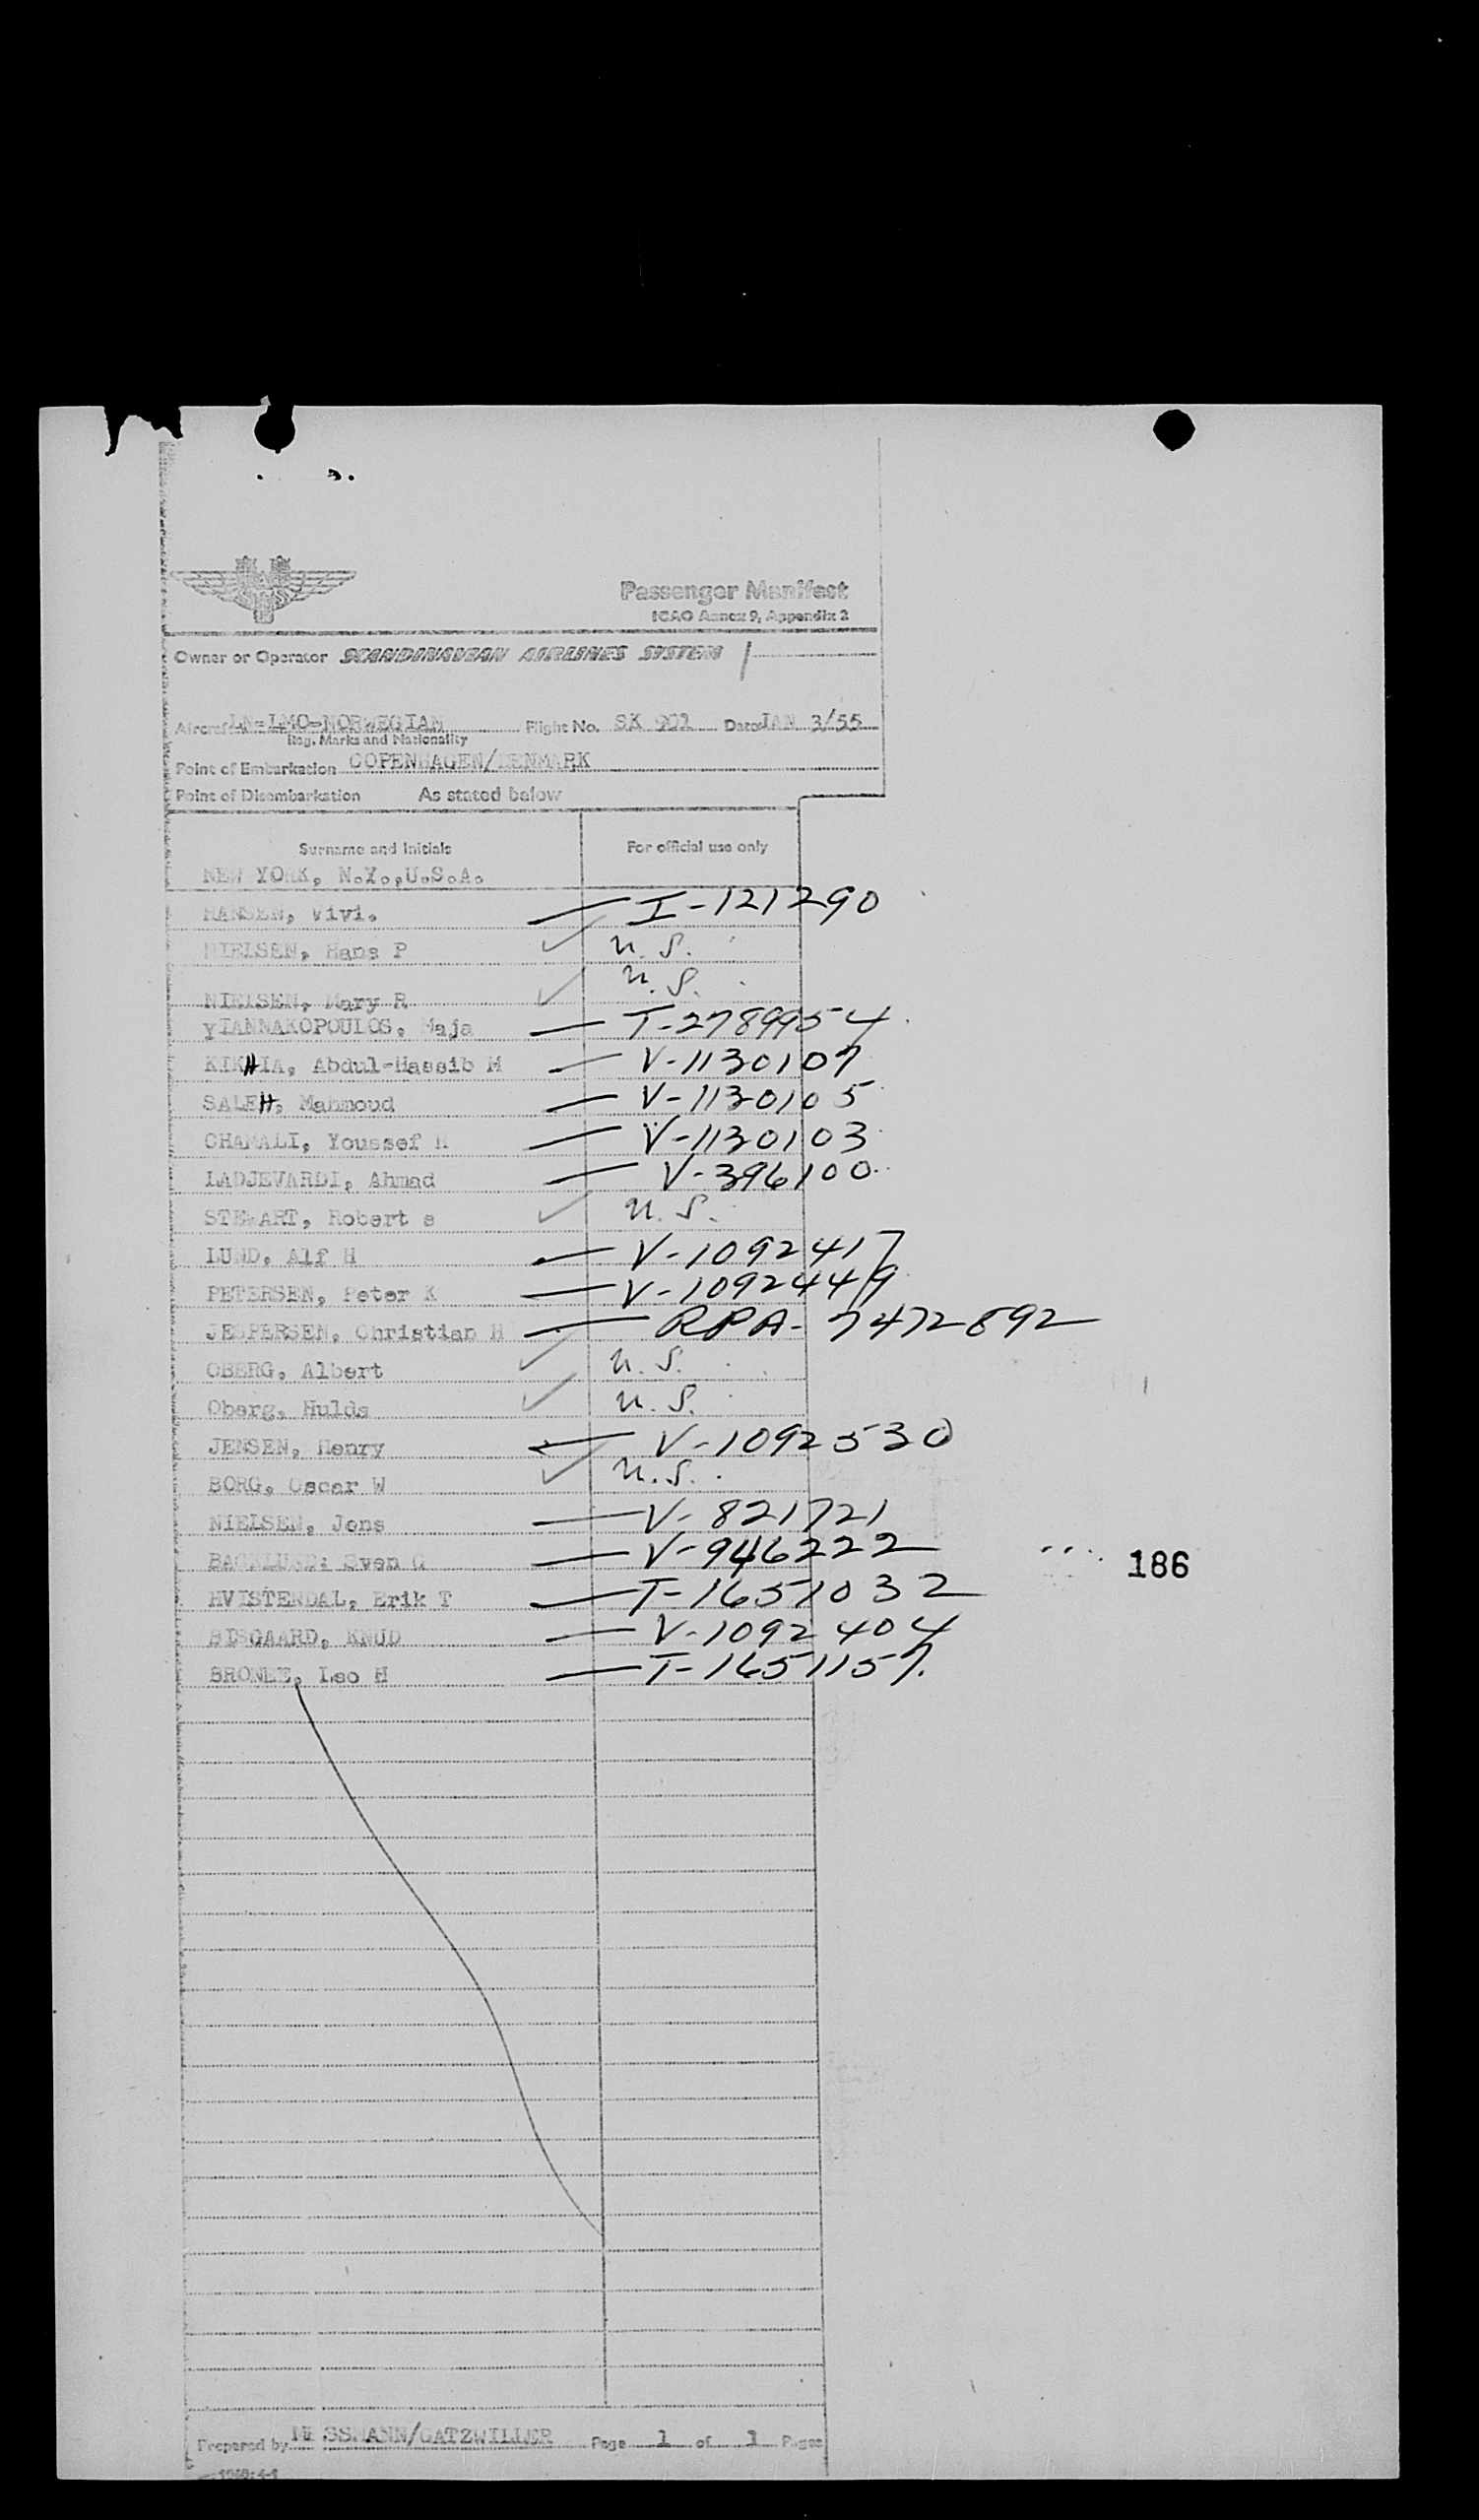 Passenger Manifest
ICAO Annex 9, Appendix 2
Owner or Operator SCANDINAVIAN AIRLINES SYSTEM
Aircraft LN-LMO-NORWEGIAN Flight No. SK 901 Date JAN 3/55
Reg. Marks and Nationality
Point of Embarkation COPENHAGEN/DENMARK
Point of Disembarkation As stated below
Surname and Initials For official use only
NEW YORK, N.Y.,U.S.A.
HANSEN, Vivi. I-121290
NIELSEN, Hans P U.S.
NIELSEN, Mary R U.S.
YIANNAKOPOULOS, Maja T-2789954
KIKHIA, Abdul-Hassib M V-1130107
SALEH, Mahmoud V-1130105
GHAMALI, Youssef M V-1130103
LADJEVARDI, Ahmad V-396100
STEWART, Robert e U.S.
LUND, Alf H V-1092417
PETERSEN, Peter K V-1092449
JESPERSEN, Christian H RPA-7472892
OBERG, Albert U.S.
Oberg, Hulda U.S.
JENSEN, Henry V-1092530
BORG, Oscar W U.S.
NIELSEN, Jens V-821721
BACKLUND: Sven G V-946222
186
HVISTENDAL, Erik T T-1651032
BISGAARD, KNUD V-1092404
BRONEE, Leo H T-1651157
Prepared by /GATZWILLER Page 1 of 1 Pages